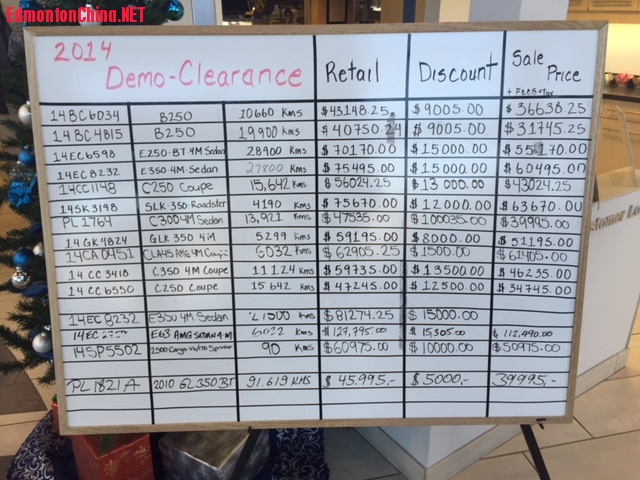 EdmontonChina.NET
2014 Demo-Clearance Retail Discount Sale Price
+ FEES + TAX
14BC6034 B250 10660 Kms $43148.25 $9005.00 $36638.25
14BC4815 B250 19900 Kms $40750.24 $9005.00 $31745.25
14EC6598 E250-BT-4M Sedan 28900 Kms $70170.00 $15000.00 $55170.00
14EC8232 E350-4M-Sedan 27800 Kms $75495.00 $15000.00 $60495.00
14CC1148 C250 Coupe 15,642 Kms $56024.25 $13000.00 $43024.25
14SK3198 SLK-350 Roadster 4190 Kms $75670.00 $12000.00 $63670.00
PL1764 C300 4M Sedan 13,921 Kms $47535.00 $100035.00 $39995.00
14GK4824 GLK 350 4M 5299 Kms $59195.00 $8000.00 $51195.00
14CA0451 CLA45 AMG 4M Coupe 6032 Kms $62905.25 $1500.00 $61405.00
14CC3418 C350 4M Coupe 11124 Kms $59735.00 $13500.00 $46235.00
14CC6550 C250 Coupe 15642 Kms $47245.00 $12500.00 $34745.00
14EC8232 E350 4M Sedan 21500 Kms $81274.25 $15000.00
E63 AMG SEDAN 4M Kms $127,795.00 $15,305.00 $112,490.00
14SP5502 2500 Cargo Sprinter 90 Kms $60975.00 $10000.00 $50975.00
PL1821A 2010 GL350BT 91.619 KMS $45.995,- $5000,- 39995,-
stomer Lo